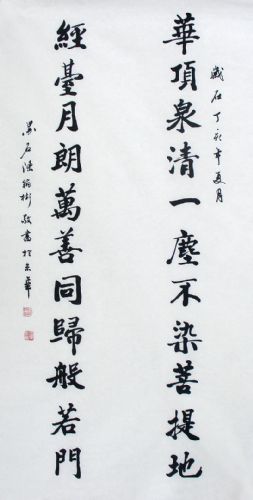 歲在丁亥年夏月
華頂泉清一塵不染菩提地
經臺月朗萬善同歸般若門
石陳敬書於京華